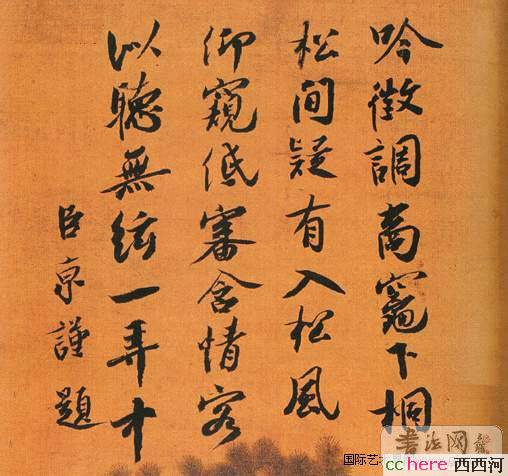 吟徵調商竈下桐
松間疑有入松風
仰窺低審含情客
似聽無絃一弄中
臣京謹題
国际艺术
cchere 西西河